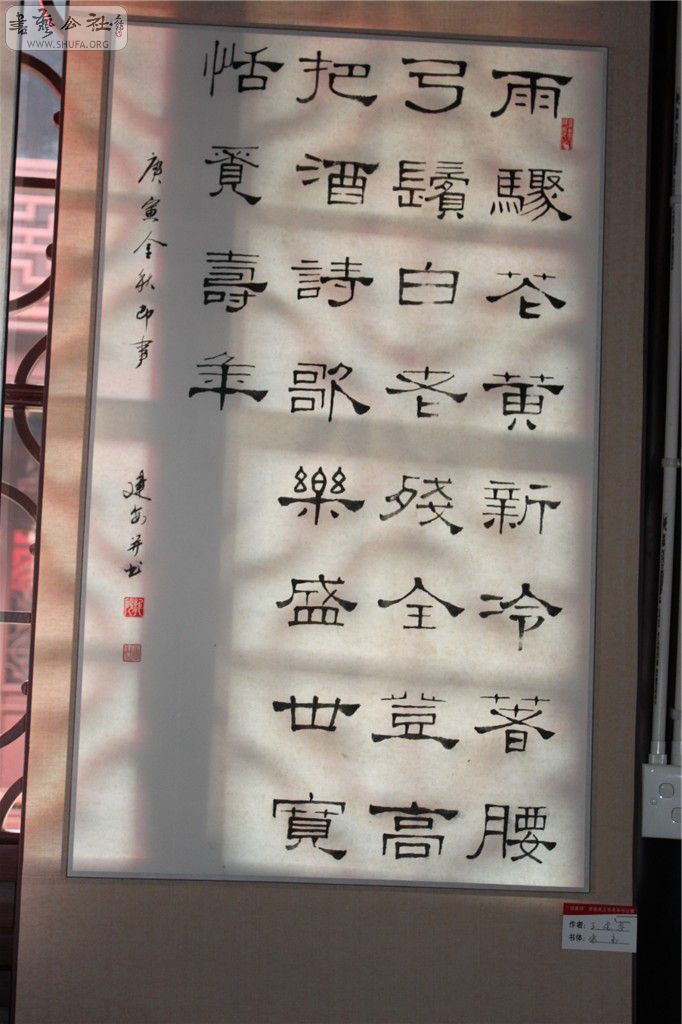 書藝公社
WWW.SHUFA.ORG
雨驟花黄新冷著腰
弓鬢白老殘全豈高
把酒詩歌樂盛世寬
恬覓壽年
庚寅金秋即事
建安并书
作者:
书体: 隶书